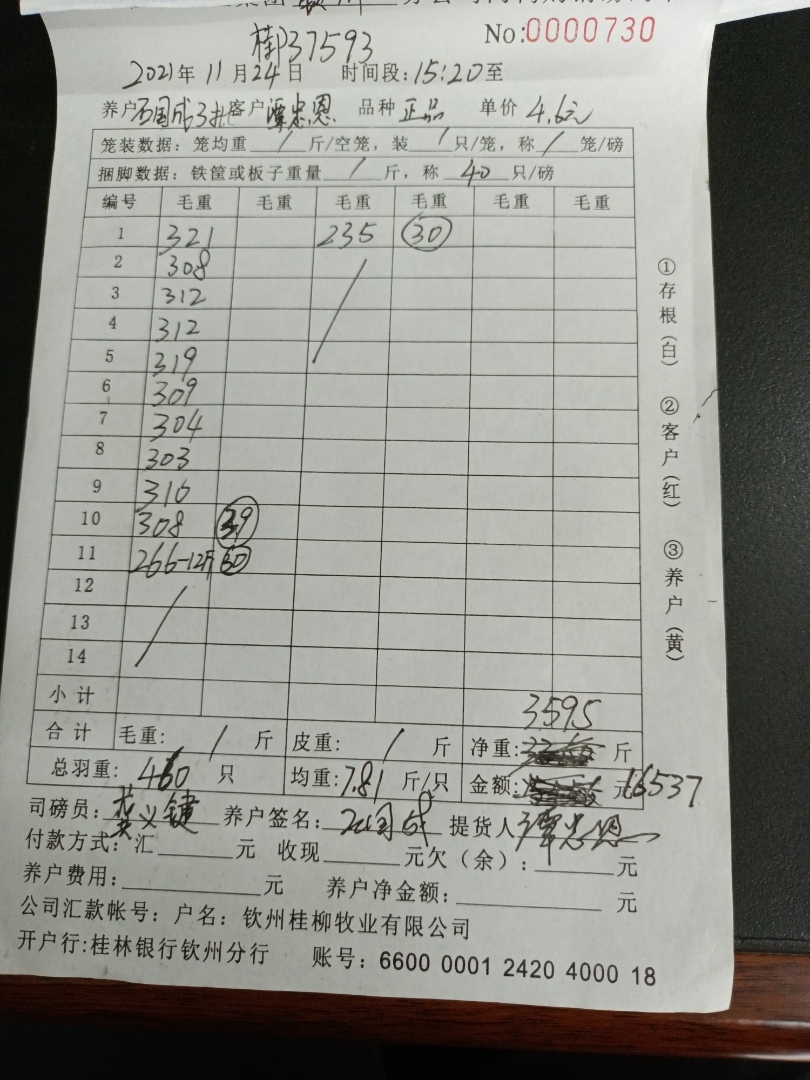 No:0000730
桂37593
2021年11月24日 时间段:15:20至
养户 石国成3批 客户 谭忠恩 品种 正品 单价 4.6元
笼装数据:笼均重 / 斤/空笼,装 / 只/笼,称 / 笼/磅
捆脚数据:铁筐或板子重量 / 斤,称 40 只/磅
编号 毛重 毛重 毛重 毛重 毛重 毛重
1 321 235 30
2 308
3 312
4 312
5 319
6 309
7 304
8 303
9 316
10 308 39
11 266-12斤 30
12
13
14
小计
3595
合计 毛重: / 斤 皮重: / 斤 净重: 斤
总羽重: 460 只 均重:7.81 斤/只 金额: 元 16537
司磅员: 义键 养户签名: 石国成 提货人 谭忠恩
付款方式:汇 元 收现 元欠(余): 元
养户费用: 元 养户净金额: 元
公司汇款帐号:户名:钦州桂柳牧业有限公司
开户行:桂林银行钦州分行 账号:6600 0001 2420 4000 18
①存根(白) ②客户(红) ③养户(黄)